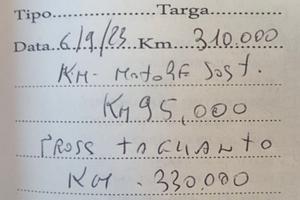 Tipo............Targa............
Data 6/9/23 Km 310.000
KM- MOTORE SOST.
KM 95,000
PROSS TAGLIANTO
KM - 330.000